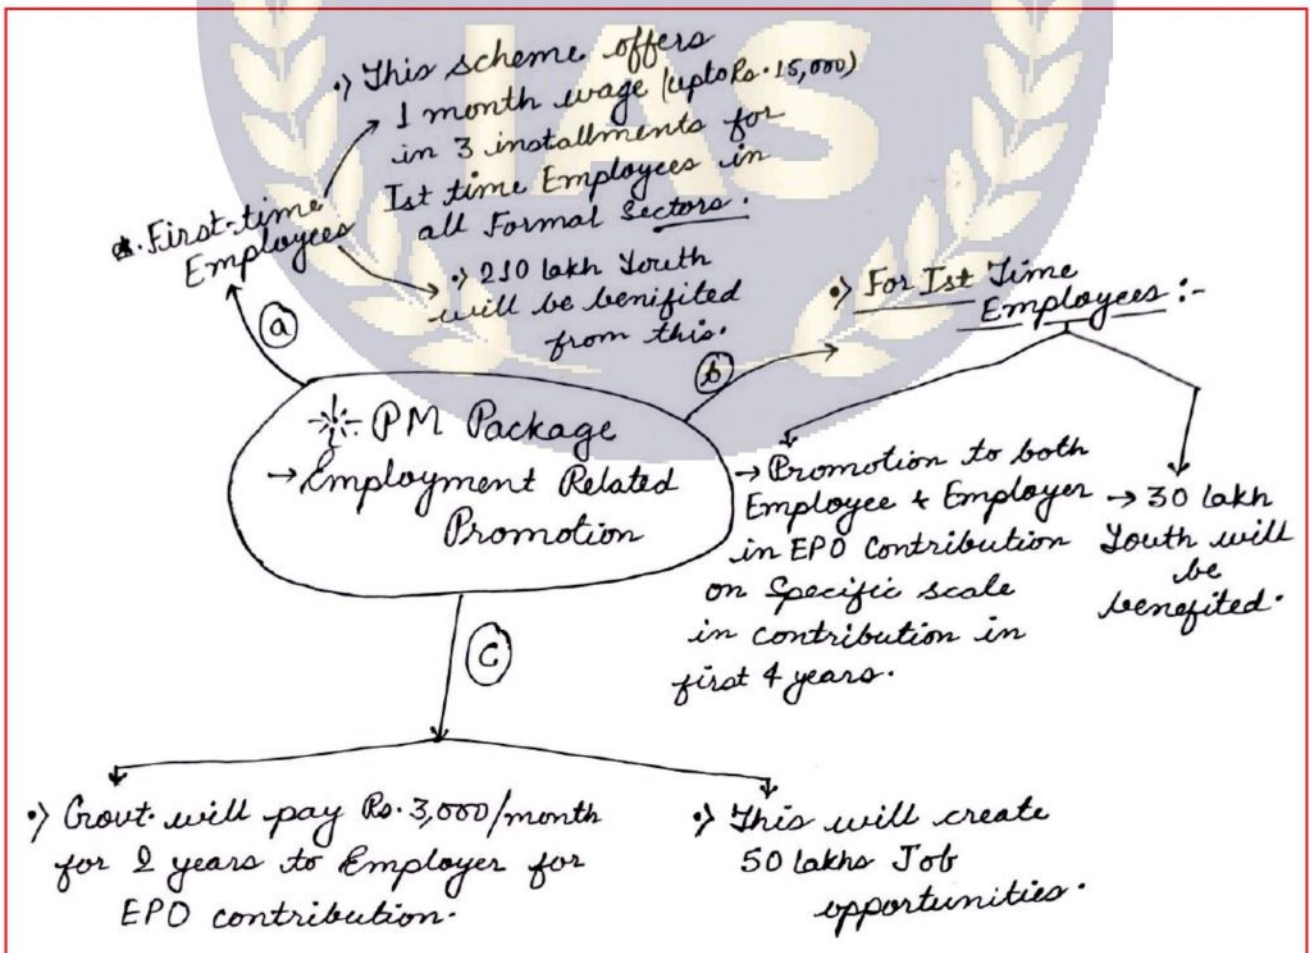 IAS
•) This scheme offers
1 month wage (upto Rs. 15,000)
in 3 installments for
Ist time Employees in
all Formal Sectors.
First-time
Employees
•) 210 lakh Youth
will be benifited
from this.
(a)
(b)
•) For Ist Time
Employees :-
→ Promotion to both
Employee & Employer
in EPO Contribution
on Specific scale
in contribution in
first 4 years.
→ 30 lakh
Youth will
be
benefited.
PM Package
→ Employment Related
Promotion
(C)
•) Govt. will pay Rs. 3,000/month
for 2 years to Employer for
EPO contribution.
•) This will create
50 lakhs Job
opportunities.